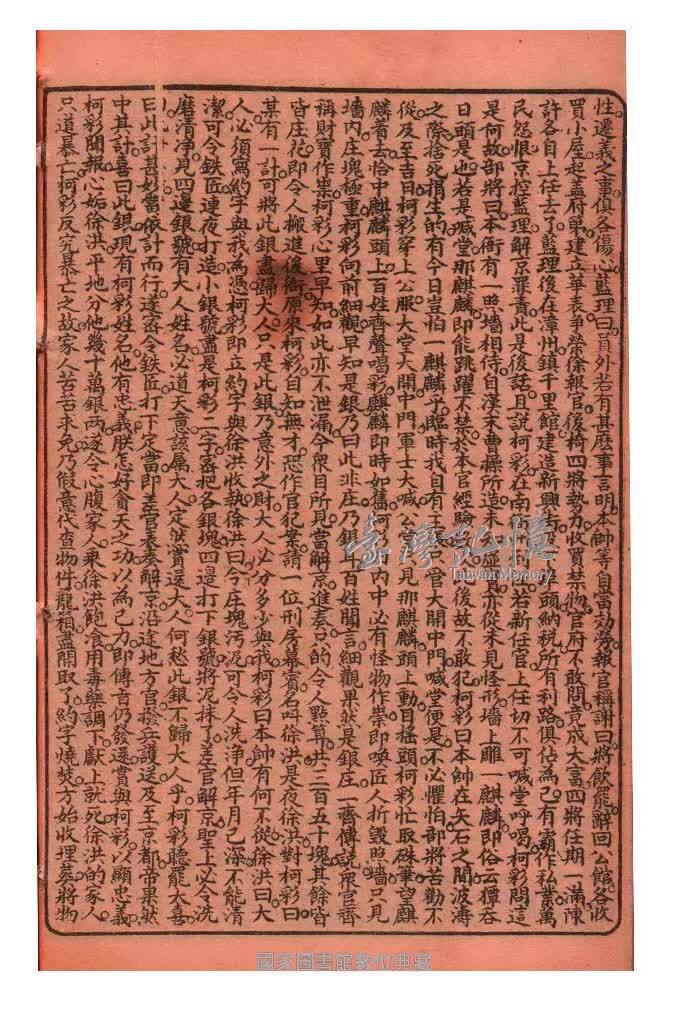 性遷義之事俱各傷心藍理曰員外若有甚麽事言明本帥等自當効勞報官稱謝曰將飲罷辭回公館各收
買小屋起盖府第建立華表爭榮徐報官後椅四將勢力收買禁物官府不敢問竟成大富四將任期一滿陳
許各自上任去了藍理後在漳州鎮千里館建造新興街
頭納税所有利路俱佔為己有霸作私業萬
民怨恨京控藍理解京罪責此是後話且説柯彩在南
若新任官上任切不可喊堂呼喝柯彩問這
是何故部將曰本衙有一照墻相侍自漢末曹操所造未
應有亦從來見怪形墻上雕一麒麟即俗云獐吞
日頭是也若是喊堂那麒麟即能跳躍不禁於本官經驗
後故不敢犯柯彩曰本帥在矢石之閒波濤
之際捨死捐生的有今日豈怕一麒麟乎臨時我自有主
只管大開中門喊堂便是不必懼怕部將苦勸不
從及至吉日柯彩穿上公服大堂大開中門軍士大喊
見那麒麟頭上動目搖頭柯彩忙取硃筆望麒
麟着去恰中麒麟頭上百姓齊聲唱彩麒麟即時如舊柯
内中必有怪物作祟即喚匠人折毁照墻只見
墻内庄塊極重柯彩向前細觀早知是銀乃曰此非庄乃銀
百姓聞言細觀果然是銀庄一齊傳説衆官齊
稱財寶作祟柯彩心里早知如此亦不泄漏今衆目所見當解京進奏
的令人點算共三百五十塊其餘皆
皆庄花即令人搬進後衙原來柯彩自知無才恐作官犯業請一位刑房幕賓名叫徐洪是夜徐洪對柯彩曰
某有一計可將此銀盡歸大人只是此銀乃意外之財大人必分多少與我柯彩曰本帥有何不從徐洪曰大
人必須寫約字與我為憑柯彩即立約字與徐洪收執徐洪曰今庄塊污泥可令人洗淨但年月已深不能清
潔可令鉄匠連夜打造小銀號盡是柯彩二字密把各銀塊四邊打下銀號將泥抹了差官解京聖上必令洗
磨清淨見四邊銀號有大人姓名必道天意該屬大人定然賞還大人何愁此銀不歸大人乎柯彩聽罷大喜
曰此計甚妙當依計而行遂密令鉄匠打下定當即差官表奏解京沿途地方官撥兵護送及至京都帝果然
中其計喜曰此銀現有柯彩姓名他有忠義朕怎好貪天之功以為己力即傳旨仍發還賞與柯彩以顯忠義
柯彩聞報心妬徐洪平地分他幾十萬銀兩遂令心腹家人乘徐洪飽飡用毒藥調下獻上就死徐洪的家人
只道暴亡柯彩反究暴亡之故家人苦苦求免乃假意代查物件籠箱盡開取了約字燒焚方始收埋葬將物
臺灣記憶
Taiwan Memory
國家圖書館數位典藏